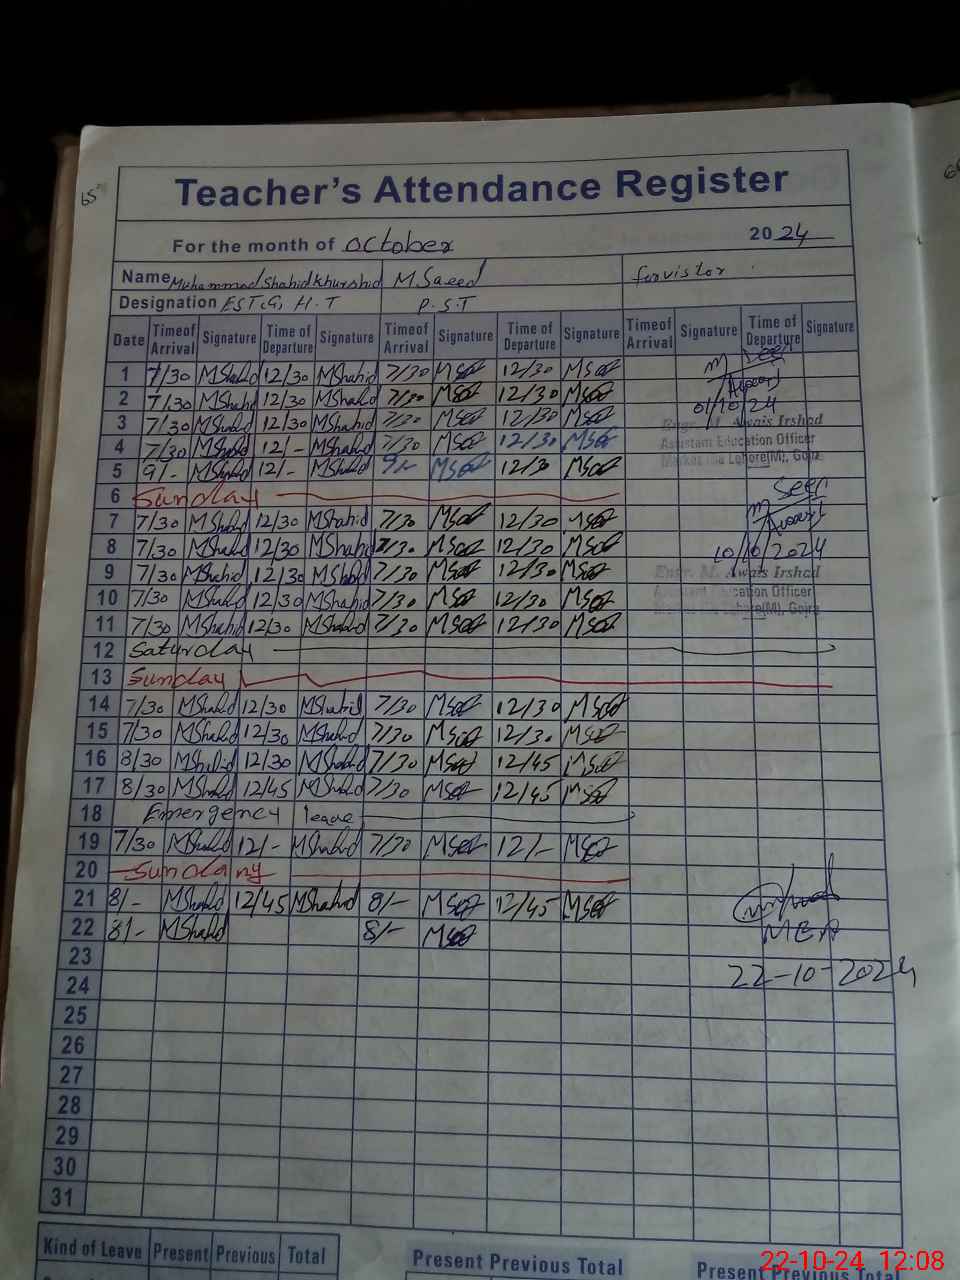 65
Teacher's Attendance Register
For the month of October 2024
Name Muhammad Shahid Khurshid M. Saeed for vistor
Designation EST, G, H.T P.S.T
Date Timeof Arrival Signature Time of Departure Signature Timeof Arrival Signature Time of Departure Signature Timeof Arrival Signature Time of Departure Signature
1 7/30 MShahid 12/30 MShahid 7/30 MSaeed 12/30 MSaeed Seen
2 7/30 MShahid 12/30 MShahid 7/30 MSaeed 12/30 MSaeed
01/10/24
3 7/30 MShahid 12/30 MShahid 7/30 MSaeed 12/30 MSaeed Engr. M. Awais Irshad
4 7/30 MShahid 12/- MShahid 7/30 MSaeed 12/30 MSaeed Assistant Education Officer
5 9/- MShahid 12/- MShahid 9/- MSaeed 12/30 MSaeed Lahore(M), Gojra
6 Sunday Seen
7 7/30 MShahid 12/30 MShahid 7/30 MSaeed 12/30 MSaeed
8 7/30 MShahid 12/30 MShahid 7/30 MSaeed 12/30 MSaeed 10/10/2024
9 7/30 MShahid 12/30 MShahid 7/30 MSaeed 12/30 MSaeed Engr. M. Awais Irshad
10 7/30 MShahid 12/30 MShahid 7/30 MSaeed 12/30 MSaeed Assistant Education Officer
11 7/30 MShahid 12/30 MShahid 7/30 MSaeed 12/30 MSaeed Lahore(M), Gojra
12 Saturday
13 Sunday
14 7/30 MShahid 12/30 MShahid 7/30 MSaeed 12/30 MSaeed
15 7/30 MShahid 12/30 MShahid 7/30 MSaeed 12/30 MSaeed
16 8/30 MShahid 12/30 MShahid 7/30 MSaeed 12/45 MSaeed
17 8/30 MShahid 12/45 MShahid 7/30 MSaeed 12/45 MSaeed
18 Emergency leave
19 7/30 MShahid 12/- MShahid 7/30 MSaeed 12/- MSaeed
20 Sunday
21 8/- MShahid 12/45 MShahid 8/- MSaeed 12/45 MSaeed
22 8/- MShahid 8/- MSaeed MEA
23
22-10-2024
24
25
26
27
28
29
30
31
Kind of Leave Present Previous Total Present Previous Total Present Previous Total
22-10-24 12:08